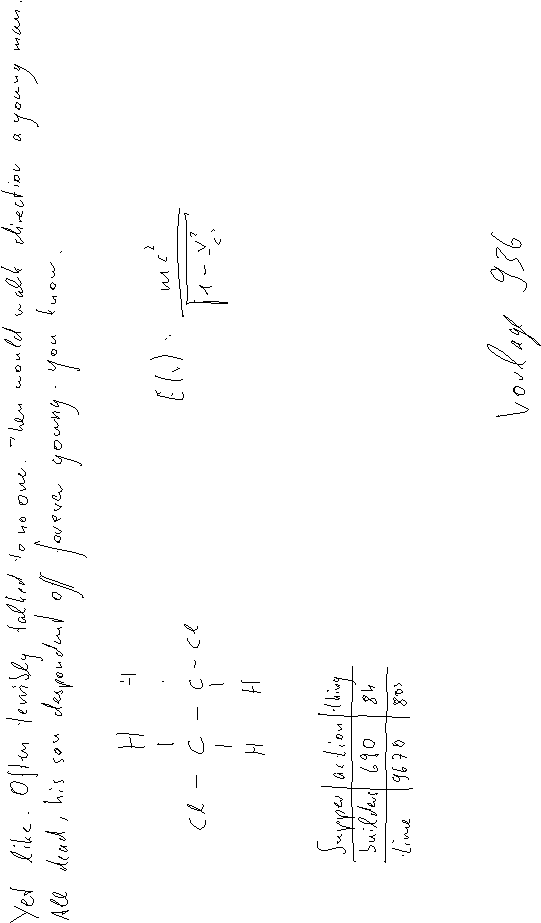 Yet like. Often terribly talked to no one. Then would walk direction a young man.
All dead, his son despondent off forever young. You know.
H H
Cl - C - C - Cl
H H
E(v) = mc² / √(1 - v²/c²)
Supper action thing
builders 690 84
time 9670 803
Vorlage 936